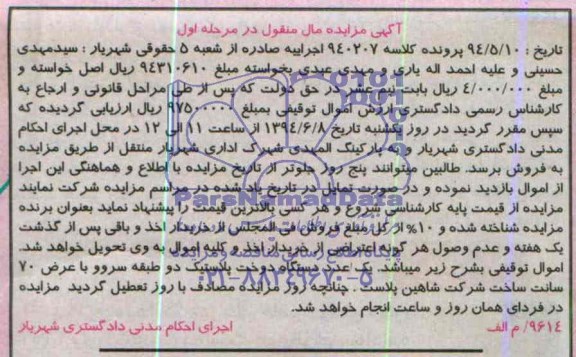 آگهی مزایده مال منقول در مرحله اول
تاریخ : ۹٤/۵/۱۰ پرونده کلاسه ۹٤۰۲۰۷ اجراییه صادره از شعبه ۵ حقوقی شهریار : سیدمهدی
حسینی و علیه احمد اله یاری و مهدی عبدی بخواسته مبلغ ۹٤۳۱۰۶۱۰ ریال اصل خواسته و
مبلغ ٤/۰۰۰/۰۰۰ ریال بابت نیم عشر در حق دولت که پس از طی مراحل قانونی و ارجاع به
کارشناس رسمی دادگستری ارزش اموال توقیفی بمبلغ ۹۷۵۰۰۰۰۰ ریال ارزیابی گردیده که
سپس مقرر گردید در روز یکشنبه تاریخ ۱۳۹٤/۶/۸ از ساعت ۱۱ الی ۱۲ در محل اجرای احکام
مدنی دادگستری شهریار و به پارکینگ المهدی شهرک اداری شهریار منتقل از طریق مزایده
به فروش برسد. طالبین میتوانند پنج روز جلوتر از تاریخ مزایده با اطلاع و هماهنگی این اجرا
از اموال بازدید نموده و در صورت تمایل در تاریخ یاد شده در مراسم مزایده شرکت نمایند
مزایده از قیمت پایه کارشناسی شروع و هر کسی بالاترین قیمت را پیشنهاد نماید بعنوان برنده
مزایده شناخته شده و ۱۰% از کل مبلغ فروش فی المجلس از خریدار اخذ و باقی پس از گذشت
یک هفته و عدم وصول هر گونه اعتراضی از خریدار اخذ و کلیه اموال به وی تحویل خواهد شد.
اموال توقیفی بشرح زیر میباشد. یک عدد دستگاه دوخت پلاستیک دو طبقه سروو با عرض ۷۰
سانت ساخت شرکت شاهین پلاست . چنانچه روز مزایده مصادف با روز تعطیل گردید مزایده
در فردای همان روز و ساعت انجام خواهد شد.
۹۶۱٤/ م الف
اجرای احکام مدنی دادگستری شهریار
ParsNamadData